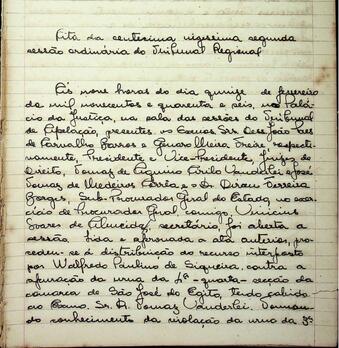 Ata da centesima vigesima segunda
sessão ordinária do Tribunal Regional
Ás nove horas do dia quinze de fevereiro
de mil novecentos e quarenta e seis, no Palá-
cio da Justiça, na sala das sessões do Tribunal
de Apelação, presentes os Exmos Srs. Des. João Paes
de Carvalho Barros e Genaro Freire, respecti-
vamente, Presidente e Vice-Presidente, Juizes de
Direito, Tomaz de Aquino Cirilo Vanderlei e José
Tomaz de Medeiros Corrêa e o Dr. Dirceu Ferreira
Borges, Sub-Procurador Geral do Estado, no exer-
cicio de Procurador Geral, comigo, Vinicius
Soares de Almeida, secretário, foi aberta a
sessão. Lida e aprovada a ata anterior, pro-
cedeu-se á distribuição do recurso interposto
por Walfredo Paulino de Siqueira, contra a
apuração da urna da 4ª - quarta - secção da
comarca de São José do Egito, tendo cabido
ao Exmo. Sr. Dr. Tomaz Vanderlei. Toman-
do conhecimento da violação da urna da 3ª